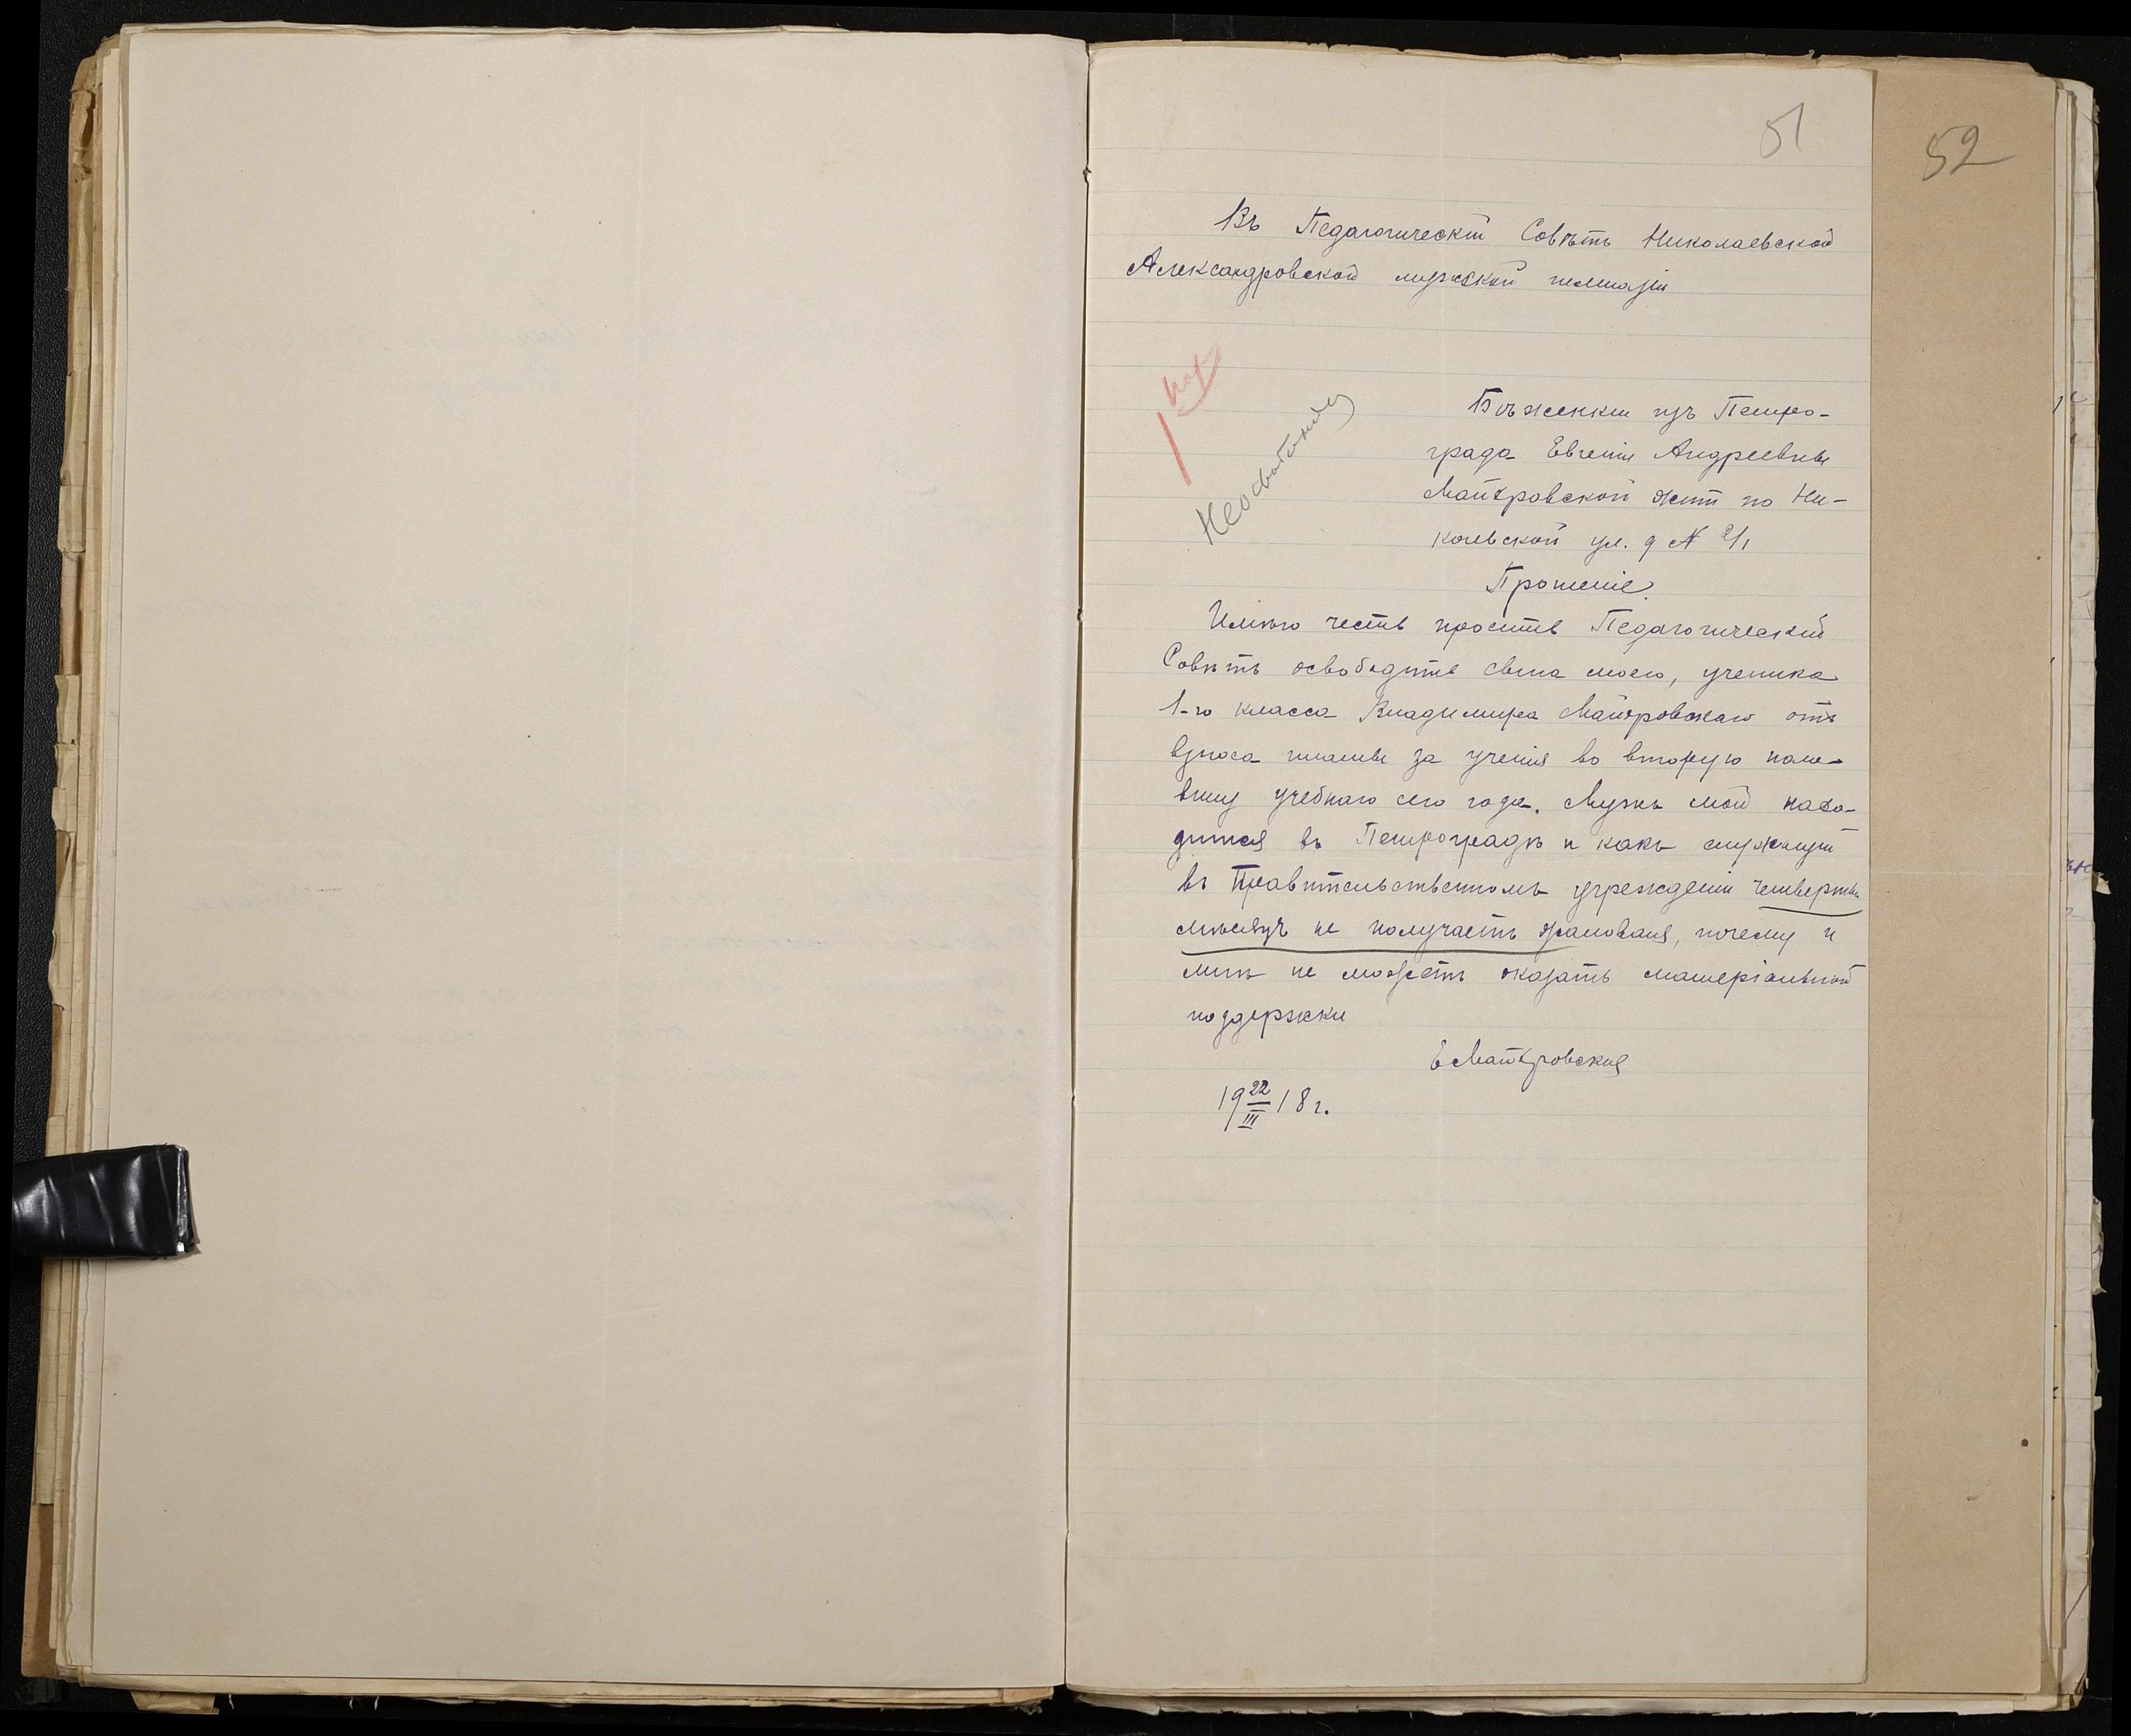 51
52
Въ Педагогическій Совѣтъ Николаевской
Александровской мужской гимназіи
Бѣженки изъ Петро-
града Евгеніи Андреевны
Майхровской жит по Ни-
кольской ул. д № 2/1
Прошеніе.
Имѣю честь просить Педагогическій
Совѣтъ освободить сына моего, ученика
1-го класса Владимира Майхровскаго отъ
взноса платы за ученія во вторую поло-
вину учебнаго сего года. Мужъ мой нахо-
дится въ Петроградѣ и какъ служащій
въ Правительственномъ учрежденіи четвертый
мѣсяцъ не получаетъ жалованія, почему и
мнѣ не можетъ оказать матеріальной
поддержки
ЕМайхровская
19 22/III 18 г.